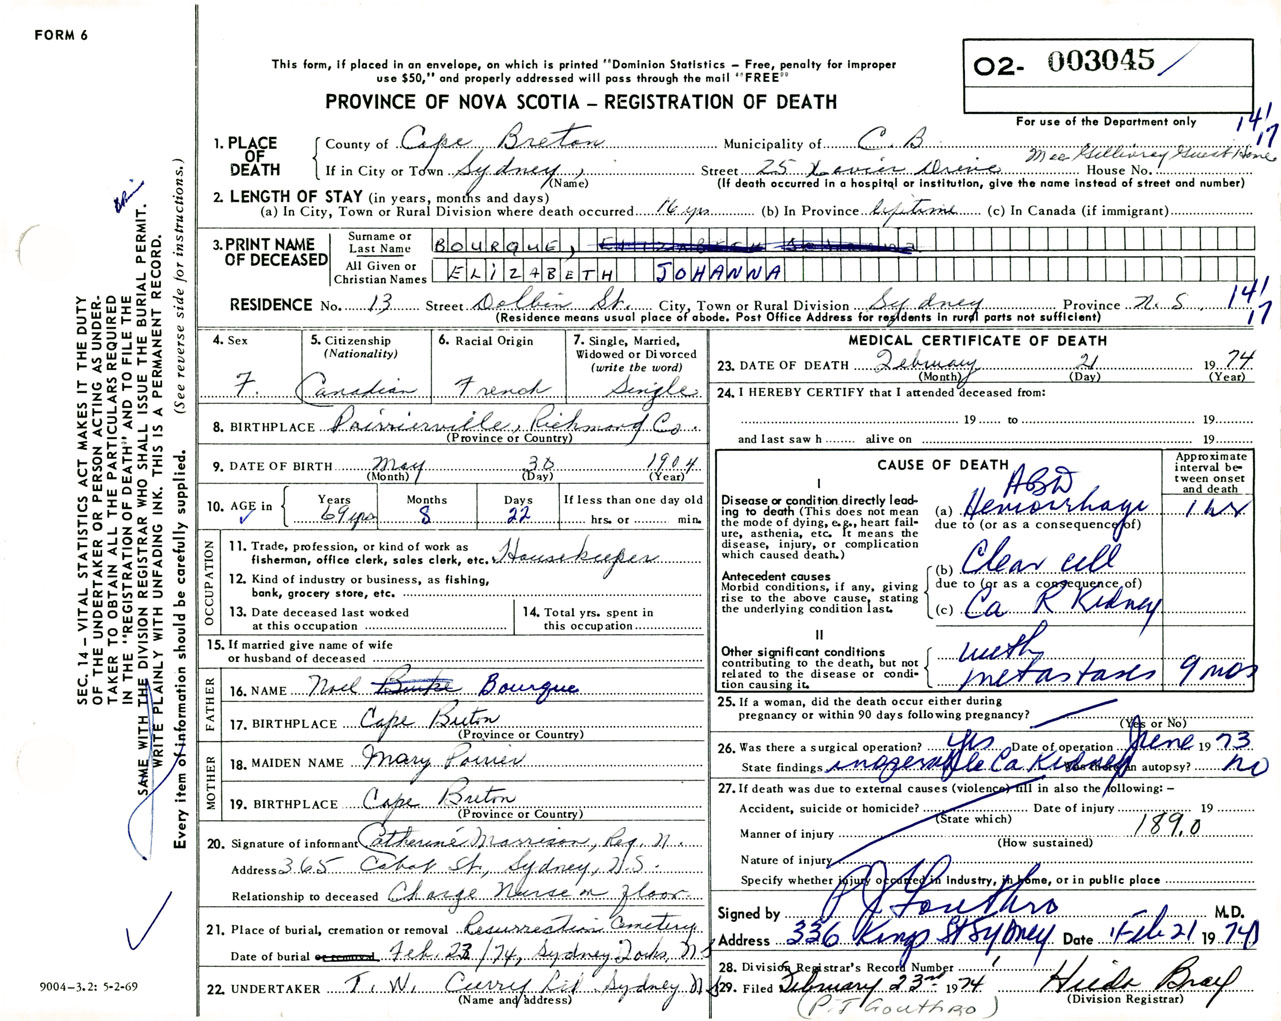 FORM 6
This form, if placed in an envelope, on which is printed "Dominion Statistics – Free, penalty for improper
use $50," and properly addressed will pass through the mail "FREE"
PROVINCE OF NOVA SCOTIA – REGISTRATION OF DEATH
O2- 003045
For use of the Department only
141
17
1. PLACE OF DEATH
County of Cape Breton Municipality of C. B.
If in City or Town Sydney, (Name) Street 25 Xavier Drive House No. MacGillivray Guest Home
(If death occurred in a hospital or institution, give the name instead of street and number)
2. LENGTH OF STAY (in years, months and days)
(a) In City, Town or Rural Division where death occurred 16 yrs (b) In Province lifetime (c) In Canada (if immigrant)
3. PRINT NAME OF DECEASED
Surname or Last Name BOURQUE,
All Given or Christian Names ELIZABETH JOHANNA
RESIDENCE No. 13 Street Dolbin St. City, Town or Rural Division Sydney Province N. S.
(Residence means usual place of abode. Post Office Address for residents in rural parts not sufficient)
141
17
4. Sex F.
5. Citizenship (Nationality) Canadian
6. Racial Origin French
7. Single, Married, Widowed or Divorced (write the word) Single
8. BIRTHPLACE Poirrierville, Richmond Co. (Province or Country)
9. DATE OF BIRTH May 30 1904
(Month) (Day) (Year)
10. AGE in Years 69 yrs Months 8 Days 22 If less than one day old hrs. or min.
OCCUPATION
11. Trade, profession, or kind of work as
fisherman, office clerk, sales clerk, etc. Housekeeper
12. Kind of industry or business, as fishing,
bank, grocery store, etc.
13. Date deceased last worked
at this occupation
14. Total yrs. spent in
this occupation
15. If married give name of wife
or husband of deceased
FATHER
16. NAME Noel Burke Bourque
17. BIRTHPLACE Cape Breton
(Province or Country)
MOTHER
18. MAIDEN NAME Mary Poirier
19. BIRTHPLACE Cape Breton
(Province or Country)
20. Signature of informant Catherine Morrison, Reg. N.
Address 365 Cabot St., Sydney, N.S.
Relationship to deceased Charge Nurse on floor
21. Place of burial, cremation or removal Resurrection Cemetery
Date of burial or removal Feb. 23/74, Sydney Forks, N S
22. UNDERTAKER T. W. Curry Ltd. Sydney N S
(Name and address)
MEDICAL CERTIFICATE OF DEATH
23. DATE OF DEATH February 21 1974
(Month) (Day) (Year)
24. I HEREBY CERTIFY that I attended deceased from:
19 to 19
and last saw h alive on 19
CAUSE OF DEATH
Approximate interval between onset and death
I
Disease or condition directly leading to death (This does not mean the mode of dying, e.g., heart failure, asthenia, etc. It means the disease, injury, or complication which caused death.)
(a) ABD Hemorrhage 1 hr
due to (or as a consequence of)
Antecedent causes
Morbid conditions, if any, giving rise to the above cause, stating the underlying condition last.
(b) Clear cell
due to (or as a consequence of)
(c) Ca R Kidney
II
Other significant conditions
contributing to the death, but not related to the disease or condition causing it.
with
metastases 9 mos
25. If a woman, did the death occur either during
pregnancy or within 90 days following pregnancy?
(Yes or No)
26. Was there a surgical operation? yes Date of operation June 1973
State findings inoperable Ca Kidney Was there an autopsy? no
27. If death was due to external causes (violence) fill in also the following: –
Accident, suicide or homicide? Date of injury 19
(State which)
Manner of injury 189.0
(How sustained)
Nature of injury
Specify whether injury occurred in industry, in home, or in public place
Signed by P J Gouthro M.D.
Address 336 Kings St Sydney Date Feb 21 1974
28. Division Registrar's Record Number
29. Filed February 23rd 1974 Hilda Bray
(Division Registrar)
(P J GOUTHRO)
SEC. 14 – VITAL STATISTICS ACT MAKES IT THE DUTY
OF THE UNDERTAKER OR PERSON ACTING AS UNDER-
TAKER TO OBTAIN ALL THE PARTICULARS REQUIRED
IN THE "REGISTRATION OF DEATH" AND TO FILE THE
SAME WITH THE DIVISION REGISTRAR WHO SHALL ISSUE THE BURIAL PERMIT.
WRITE PLAINLY WITH UNFADING INK. THIS IS A PERMANENT RECORD.
Every item of information should be carefully supplied. (See reverse side for instructions.)
9004-3.2: 5-2-69